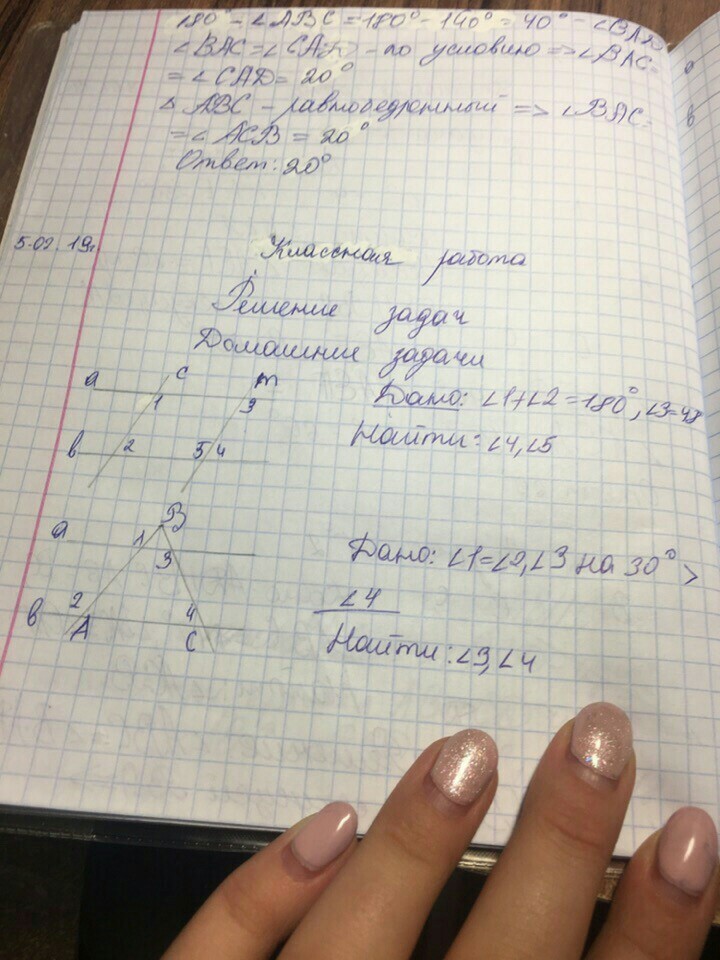 180° - ∠ABC = 180° - 140° = 40° - ∠BAD
∠BAC = ∠CAD - по условию => ∠BAC =
= ∠CAD = 20°
△ ABC - равнобедренный => ∠BAC =
= ∠ACB = 20°
Ответ: 20°
5.02.19г.
Классная работа
Решение задач
Домашние задачи
a c m
1 3
Дано: ∠1+∠2 = 180°, ∠3=48
в 2 5 4
Найти: ∠4, ∠5
B
a 1
3
Дано: ∠1=∠2, ∠3 на 30° >
∠4
2 4
в A C
Найти: ∠3, ∠4